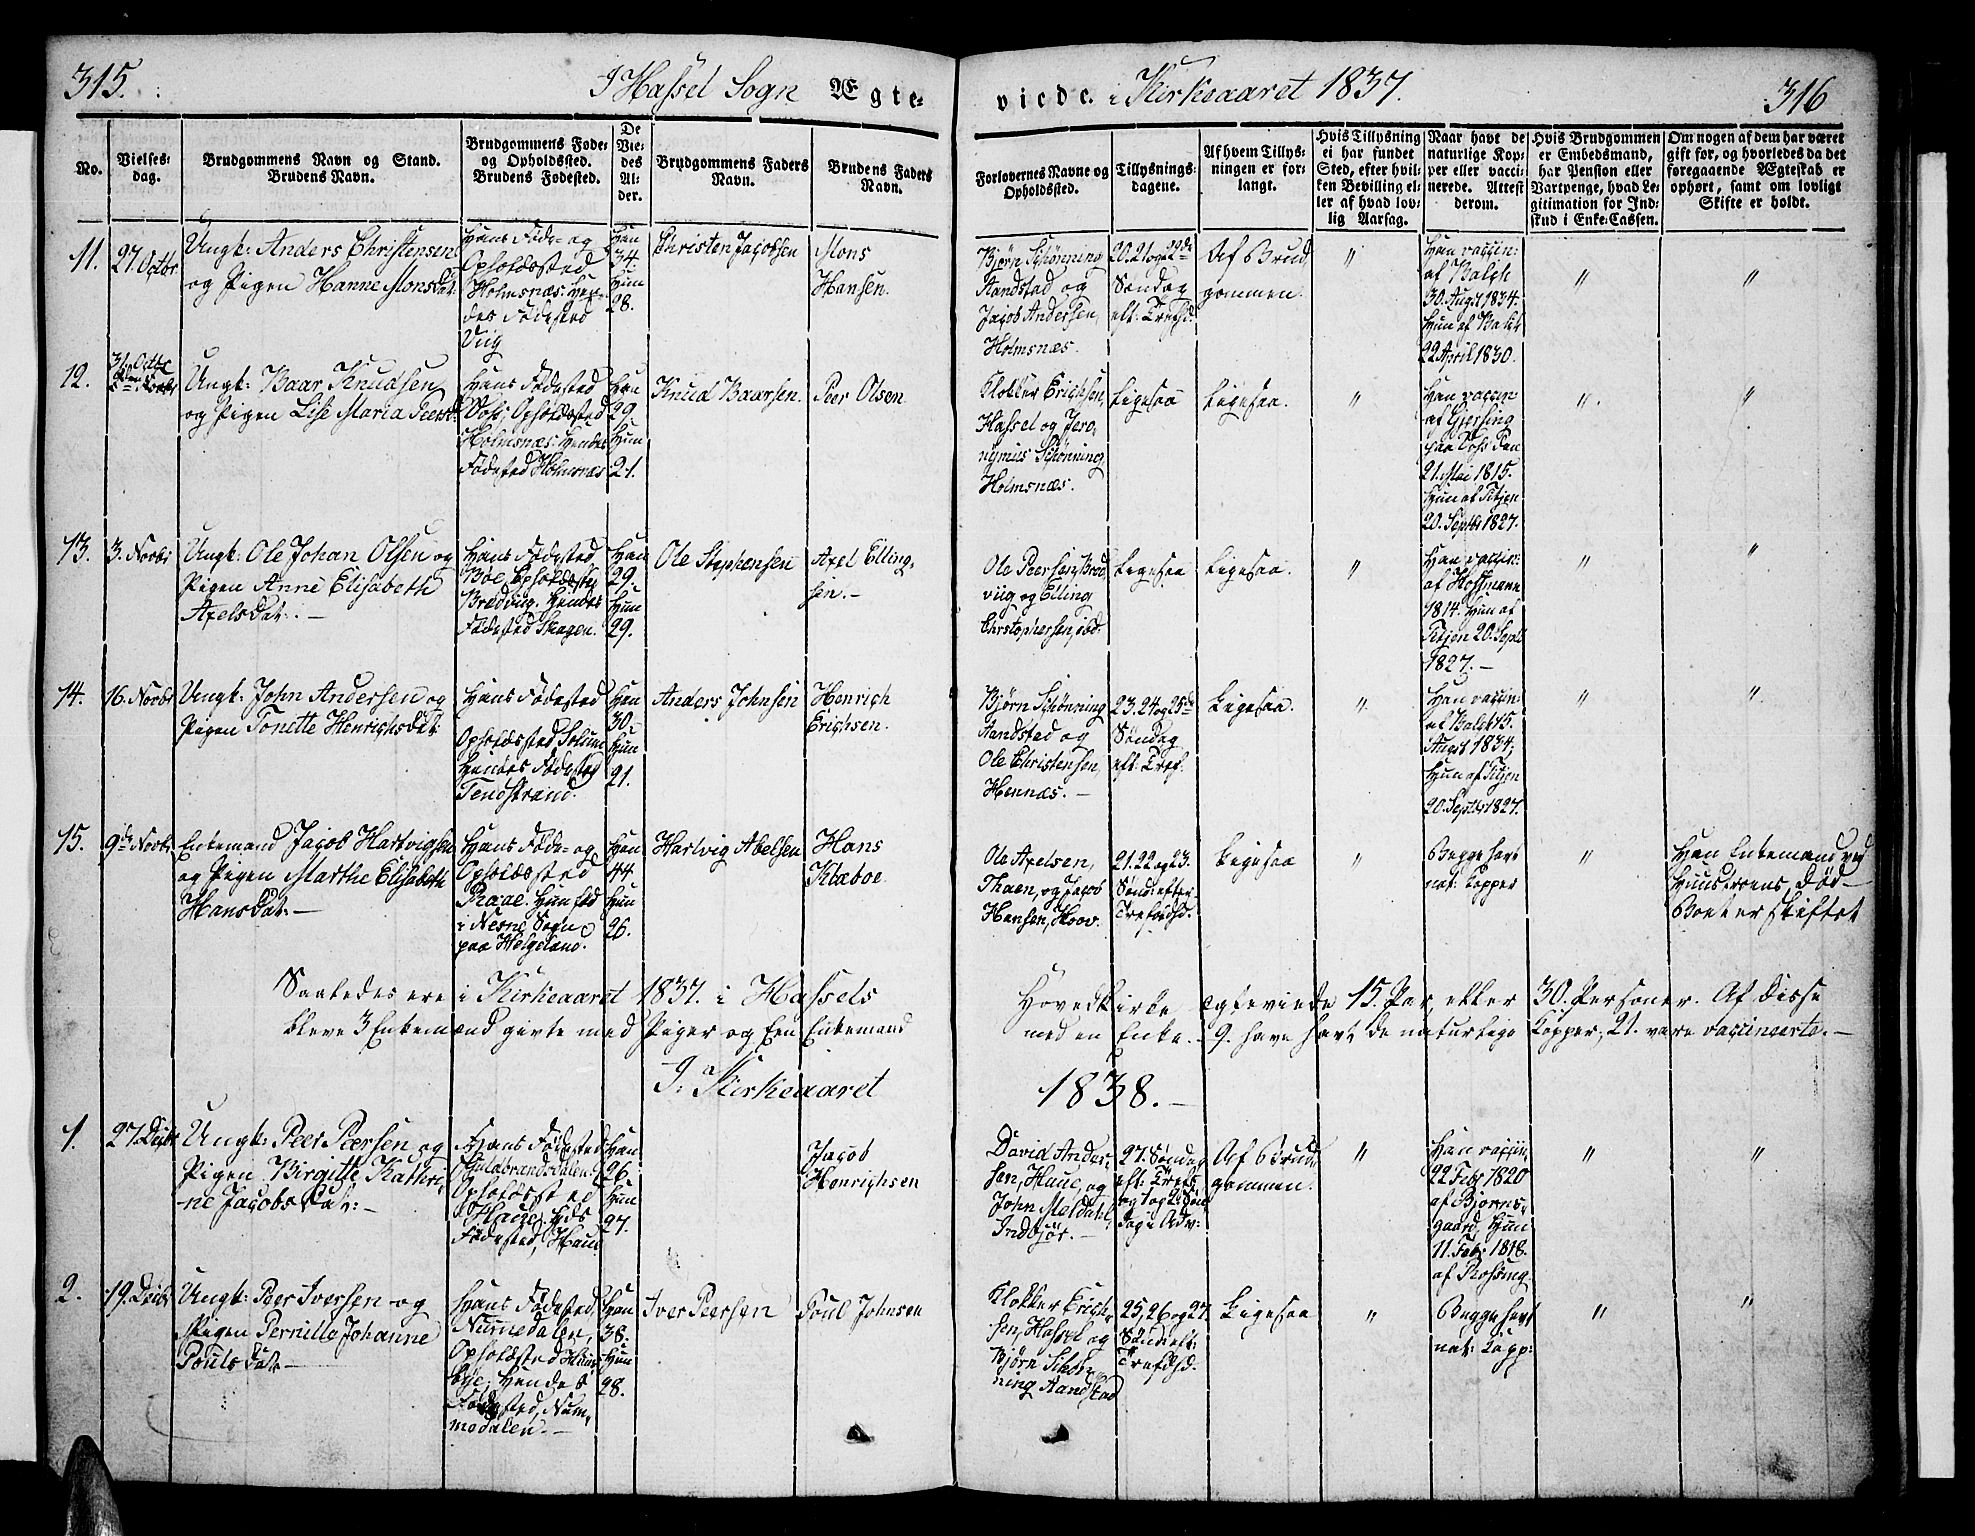 315.
I Hassel Sogn Ægte-
viede. i Kirkeaaret 1837.
316
No.
Vielses-
dag.
Brudgommens Navn og Stand.
Brudens Navn.
Brudgommens Føde-
og Opholdssted.
Brudens Fødested.
De
Vie-
des
Al-
der.
Brudgommens Faders
Navn.
Brudens Faders
Navn.
Forlovernes Navne og
Opholdssted.
Tillysnings-
dagene.
Af hvem Tillys-
ningen er for-
langt.
Hvis Tillysning
ei har fundet
Sted, efter hvil-
ken Bevilling el-
ler af hvad lov-
lig Aarsag.
Naar havt de
naturlige Kop-
per eller vacci-
nerede. Attest
derom.
Hvis Brudgommen
er Embedsmand,
har Pension eller
Vartpenge, hvad Le-
gitimation for Ind-
skud i Enke-Cassen.
Om nogen af dem har været
gift før, og hvorledes da det
foregaaende Ægteskab er
ophørt, samt om lovligt
Skifte er holdt.
11.
27 Octbr
Ungk: Anders Christensen
og Pigen Hanne Monsdat.
Hans Føde- og
Opholdssted
Holmsnæs. Hen-
des Fødested
Viig
Han
34.
Hun
28.
Christen Jacobsen
Mons
Hansen.
Bjørn Schønning
Aandstad og
Jacob Andersen,
Holmsnæs.
20. 21 og 22de
Søndag
eft: Trefsd.
Af Brud
gommen.
"
Han vaccin:
af
30. Augst 1834.
Hun af
22 April 1830.
"
"
12.
31 Octbr
Ungk: Baar Knudsen
og Pigen Lise Maria Peersd.
Hans Fødested
Vos; Opholdssted
Holmsnæs. Hendes
Fødested Holmsnæs
Han
29.
Hun
21.
Knud Baarsen.
Peer Olsen
Klokker Erichsen,
Hassel og Jero,
nymus Schønning,
Holmsnæs.
Ligesaa
Ligesaa.
"
Han vaccin
af Gjersing
paa Voss den
21. Mai 1815.
Hun af Titjen
20. Septbr 1827.
"
"
13.
3. Novbr
Ungk: Ole Johan Olsen og
Pigen Anne Elisabeth
Axelsdat: —
Hans Fødested
Bøe, Opholdssted
Brædviig. Hendes
Fødested Skagen.
Han
29.
Hun
29.
Ole Stephensen
Axel Elling,
sen. —
Ole Peersen, Bræd,
viig og Elling
Christophersen, ibd.
Ligesaa
Ligesaa.
"
Han vaccin:
af Hoffmann
1814. Hun af
Titjen 20. Septbr
1827. —
"
"
14.
16. Novbr
Ungk: John Andersen og
Pigen Tonette Henrichsdat.
Hans Fødested
Opholdssted Solum
Hendes Fødested
Tendstrand.
Han
30.
Hun
21.
Anders Johnsen
Henrich
Erichsen.
Bjørn Schønning
Aandstad og
Ole Christensen,
Hennæs. —
23. 24 og 25de
Søndag
eft: Tref.
Ligesaa.
"
Han vaccin
af 15.
Augst 1834,
Hun af Titjen
20. Septbr 1827.
"
"
15.
9de Novbr
Enkemand Jacob Hartvigsen
og Pigen Marthe Elisabeth
Hansdat: —
Hans Føde- og
Opholdssted
Raae. Hun fød
i Nesne Sogn
paa Helgeland.
Han
44
Hun
26.
Hartvig Abelsen
Hans
Klæboe.
Ole Axelsen,
Thaen, og Jacob
Hansen, Skov.
21. 22 og 23.
Sønd: efter
Trefoldhd.
Ligesaa
"
Begge havt
nat: Kopper
"
Han Enkemand ved
Hustruens Død —
Boet er skiftet
Saaledes ere i Kirkeaaret 1837. i Hassels Hovedkirke ægteviede 15. Par, eller 30. Personer. Af disse
bleve 3 Enkemænd givte med Piger og Een Enkemand med en Enke. — 9. have havt de naturlige Kopper, 21. vare vaccineerte. —
I Kirkeaaret 1838. —
1.
27 Decbr
Ungk: Peer Peersen og
Pigen Birgitte Kathri,
ne Jacobsdat: —
Hans Fødested
Guldbrandsdalen.
Opholdssted
Hauge. Hds
Fødested, Haue
Han
26.
Hun
27.
Jacob
Henrichsen
David Ander,
sen, Haue, og
John Meldahl,
Indbjør. —
27. Søndag
eft: Trefs
og 1 og 2. Søn
dag i Adv:
Af Brud
gommen.
"
Han vaccin
22 Febr 1820
af Bjørns,
gaard. Hun
11. Febr 1818.
af Rossing.
"
"
2.
19. Decbr
Ungk: Peer Iversen og
Pigen Pernille Johanne
Poulsdat —
Hans Fødested,
Numedalen,
Opholdssted
bye; Hendes
Fødested, Num,
medalen. —
Han
38.
Hun
28.
Iver Peersen
Poul Johnsen
Klokker Erich,
sen, Hassel og
Bjørn Schøn,
ning Aandstad
25, 26 og 27.
Sønd: eft:
Trefsd.
Ligesaa
"
Begge havt
nat: Kopp:
"
"